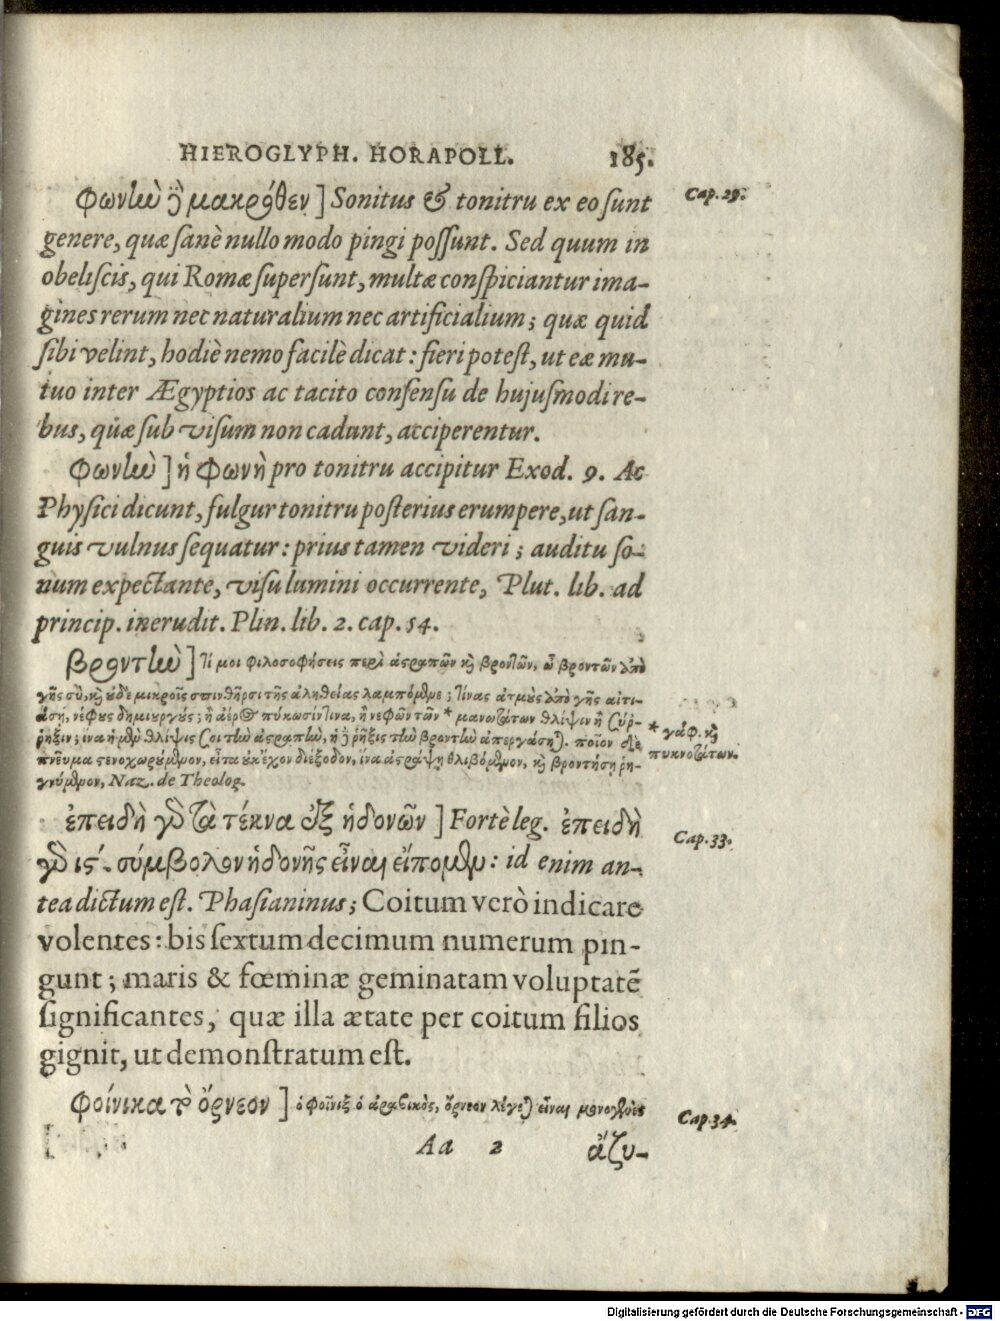 HIEROGLYPH. HORAPOLL. 185.
φωνὴν ὃ μακρόθεν] Sonitus & tonitru ex eo sunt
Cap. 29.
genere, quæ sanè nullo modo pingi possunt. Sed quum in
obeliscis, qui Romæ supersunt, multæ conspiciantur ima-
gines rerum nec naturalium nec artificialium; quæ quid
sibi velint, hodiè nemo facilè dicat: fieri potest, ut eæ mu-
tuo inter Ægyptios ac tacito consensu de hujusmodi re-
bus, quæ sub visum non cadunt, acciperentur.
φωνὴν] ἡ φωνὴ pro tonitru accipitur Exod. 9. Ac
Physici dicunt, fulgur tonitru posterius erumpere, ut san-
guis vulnus sequatur: prius tamen videri; auditu so-
num expectante, visu lumini occurrente, Plut. lib. ad
princip. inerudit. Plin. lib. 2. cap. 54.
βροντὴν] τί μοι φιλοσοφήσεις περὶ ἀστραπῶν καὶ βροντῶν, ὦ βροντῶν ἀπὸ
γῆς σὺ, καὶ οὐδὲ μικροῖς σπινθῆρσι τῆς ἀληθείας λαμπόμενε; τίνας ἀτμοὺς ἀπὸ γῆς αἰτι-
άσῃ, νέφους δημιουργούς; ἢ ἀέρος πύκωσίν τινα, ἢ νεφῶν τῶν * μανωτάτων θλίψιν ἢ σύρ-
ρηξιν; ἵνα ἡ μὲν θλίψις σοι τὴν ἀστραπὴν, ἡ δὲ ῥῆξις τὴν βροντὴν ἀπεργάσηται. ποῖον δὲ
* γράφ. καὶ
πυκνοτάτων.
πνεῦμα στενοχωρούμενον, εἶτα οὐκ ἔχον διέξοδον, ἵνα ἀστράψῃ θλιβόμενον, καὶ βροντήσῃ ῥη-
γνύμενον, Naz. de Theolog.
ἐπειδὴ γὸ τὰ τέκνα ἐξ ἡδονῶν] Fortè leg. ἐπειδὴ
Cap. 33.
γὸ ις΄. σύμβολον ἡδονῆς εἶναι εἴπομεν: id enim an-
tea dictum est. Phasianinus; Coitum verò indicare
volentes: bis sextum decimum numerum pin-
gunt; maris & fœminæ geminatam voluptatē
significantes, quæ illa ætate per coitum filios
gignit, ut demonstratum est.
φοίνικα τὸ ὄρνεον] ὁ φοῖνιξ ὁ ἀραβικὸς, ὄρνεον λέγεται εἶναι μονογενὲς
Cap. 34.
Aa 2 ἄζυ-
Digitalisierung gefördert durch die Deutsche Forschungsgemeinschaft - DFG